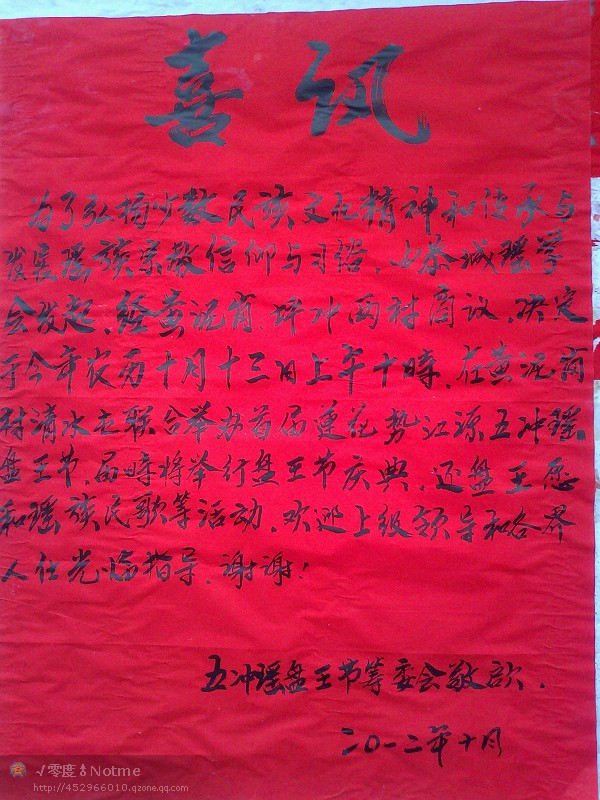 喜讯
为了弘扬少数民族文化精神和传承与
发展瑶族宗教信仰与习俗，由恭城瑶学
会发起，经黄泥岗、坪冲两村商议，决定
于今年农历十月十三日上午十時，在黄泥岗
村清水立联合举办首届莲花势江源五冲瑶
盘王节，届時将举行盘王节庆典，还盘王愿
和瑶族民歌等活动，欢迎上级领导和各界
人仕光临指导，谢谢！
五冲瑶盘王节筹委会敬
二〇一二年十月
√零度⇂Notme
http://452966010.qzone.qq.com